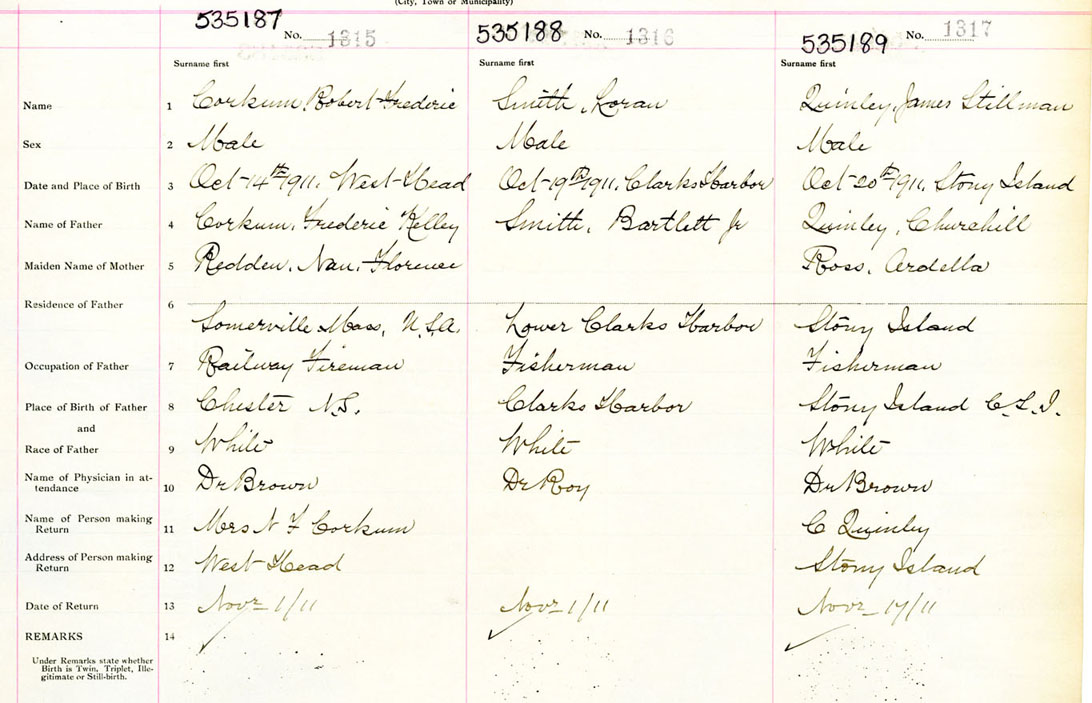 (City, Town or Municipality)
535187 No. 1315 535188 No. 1316 535189 No. 1317
Surname first Surname first Surname first
Name 1 Corkum, Robert Frederic Smith, Loran Quinley, James Stillman
Sex 2 Male Male Male
Date and Place of Birth 3 Oct 14th 1911. West Head Oct 19th 1911. Clarks Harbor Oct 20th 1911. Stony Island
Name of Father 4 Corkum, Frederic Kelley Smith, Bartlett Jr Quinley, Churchill
Maiden Name of Mother 5 Redden, Nan. Florence Ross, Ardella
Residence of Father 6
Somerville Mass, U.S.A. Lower Clarks Harbor Stony Island
Occupation of Father 7 Railway Fireman Fisherman Fisherman
Place of Birth of Father 8 Chester N.S. Clarks Harbor Stony Island C.S.I.
and
Race of Father 9 White White White
Name of Physician in at-
tendance 10 Dr Brown Dr Roy Dr Brown
Name of Person making
Return 11 Mrs N F Corkum C Quinley
Address of Person making
Return 12 West Head Stony Island
Date of Return 13 Novr 1/11 Novr 1/11 Novr 17/11
REMARKS 14
Under Remarks state whether
Birth is Twin, Triplet, Ille-
gitimate or Still-birth.